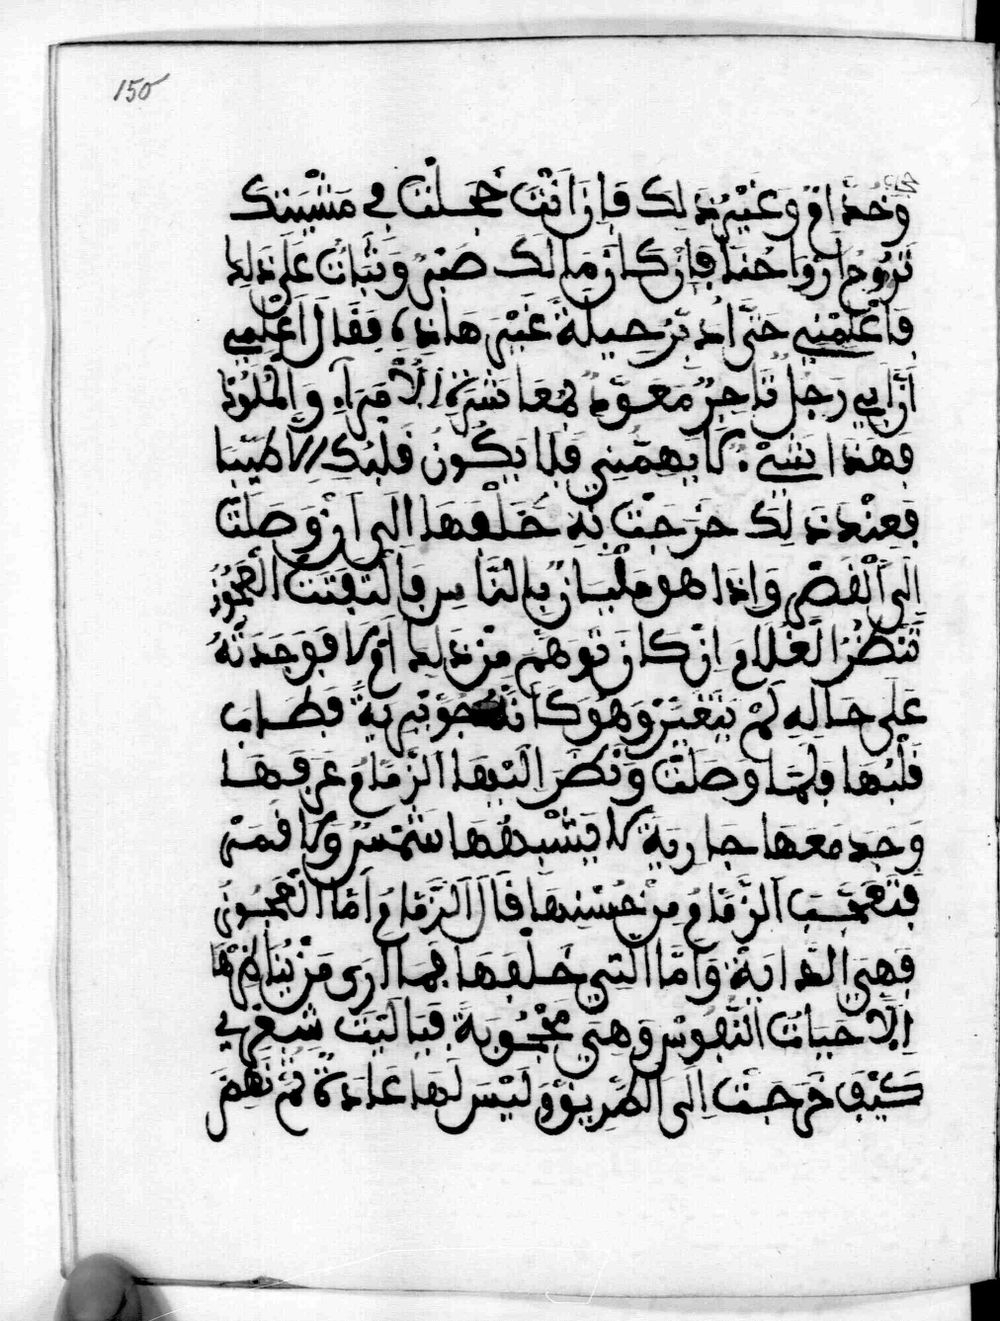 150
وَخُدَّامٍ وَغَيْرِ ذَلِكَ فَإِنْ أَنْتَ عَجَلْتَ فِي مَشْيَتِكَ
تَرُوحُ أَرْوَاحُنَا فَإِنْ كَانَ مَا لَكَ صَبْرٌ وَثَبَاتٌ عَلَى ذَلِكَ
فَأَعْلِمْنِي حَتَّى أُدَبِّرَ حِيلَةً غَيْرَ هَاذِهِ فَقَالَ أَعْلَمِي
أَنَّ أَبِي رَجُلٌ تَاجِرٌ مُعَوَّدٌ بِمُعَاشَرَةِ الْأُمَرَاءِ وَالْمُلُوكِ
فَهَذَا شَيْءٌ لَا يَهُمُّنِي فَلَا يَكُونُ قَلْبُكِ إِلَّا طَيِّبًا
فَعِنْدَ ذَلِكَ خَرَجَتْ بِهِ خَلْفَهَا إِلَى أَنْ وَصَلَتْ
إِلَى الْقَصْرِ وَإِذَا هُوَ مَلْيَانٌ بِالنَّاسِ فَالْتَفَتَتِ الْعَجُوزُ
تَنْظُرُ الْغُلَامَ إِنْ كَانَ تَوَهَّمَ مِنْ ذَلِكَ أَمْ لَا فَوَجَدَتْهُ
عَلَى حَالِهِ لَمْ يَتَغَيَّرْ وَهُوَ كَأَنَّهُ جُوَيْرِيَةٌ فَطَابَ
قَلْبُهَا فَلَمَّا وَصَلَتْ وَنَظَرَ إِلَيْهَا الزَّمَّامُ عَرَفَهَا
وَجَدَ مَعَهَا جَارِيَةً لَا يُشْبِهُهَا شَمْسٌ وَلَا قَمَرٌ
فَتَعَجَّبَ الزَّمَّامُ مِنْ حُسْنِهَا قَالَ الزَّمَّامُ أَمَّا الْعَجُوزُ
فَهِيَ الدَّايَةُ وَأَمَّا الَّتِي خَلْفَهَا فَمَا أَرَى مَنْ
إِلَّا حَيَاتُ النُّفُوسِ وَهِيَ مَحْجُوبَةٌ فَيَا لَيْتَ شِعْرِي
كَيْفَ خَرَجَتْ إِلَى الطَّرِيقِ وَلَيْسَ لَهَا عَادَةٌ ثُمَّ نَهَضَ